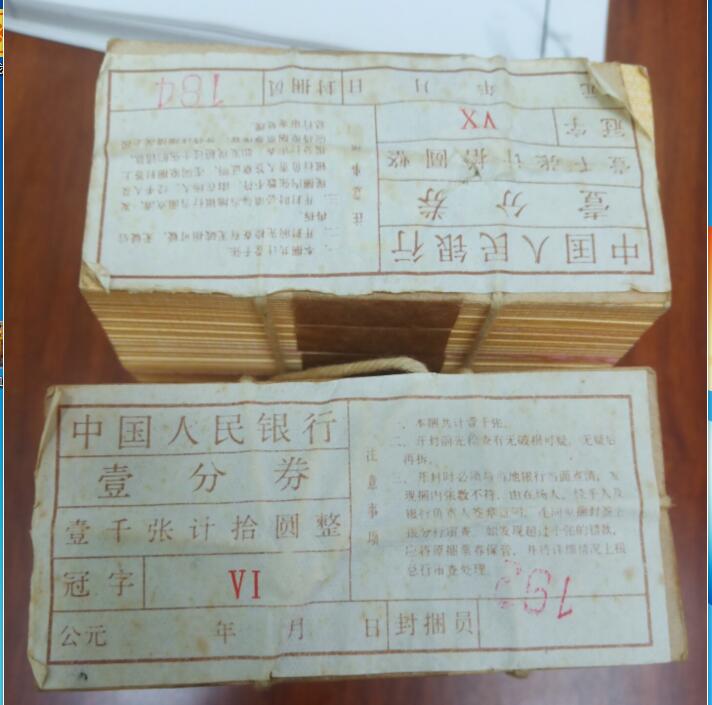 中国人民银行
壹分券
壹千张计拾圆整
冠字 VX
元 年 月 日 封捆员 184
注意事项
一、本捆共计壹千张。
二、开封前先检查有无破损可疑，无疑后
再拆。
三、开封时必须与当地银行当面点清，发
现捆内张数不符，由在场人，经手人及
银行负责人签章证明，连同原捆封签上
中国人民银行
壹分券
壹千张计拾圆整
冠字 VI
公元 年 月 日 封捆员
注意事项
一、本捆共计壹千张。
二、开封前先检查有无破损可疑，无疑后
再拆。
三、开封时必须与当地银行当面点清，发
现捆内张数不符，由在场人，经手人及
银行负责人签章证明，连同原捆封签
该分行审查，如发现超过十张的错款，
应将原捆票券保管，并将详细情况上报
总行市查处理。